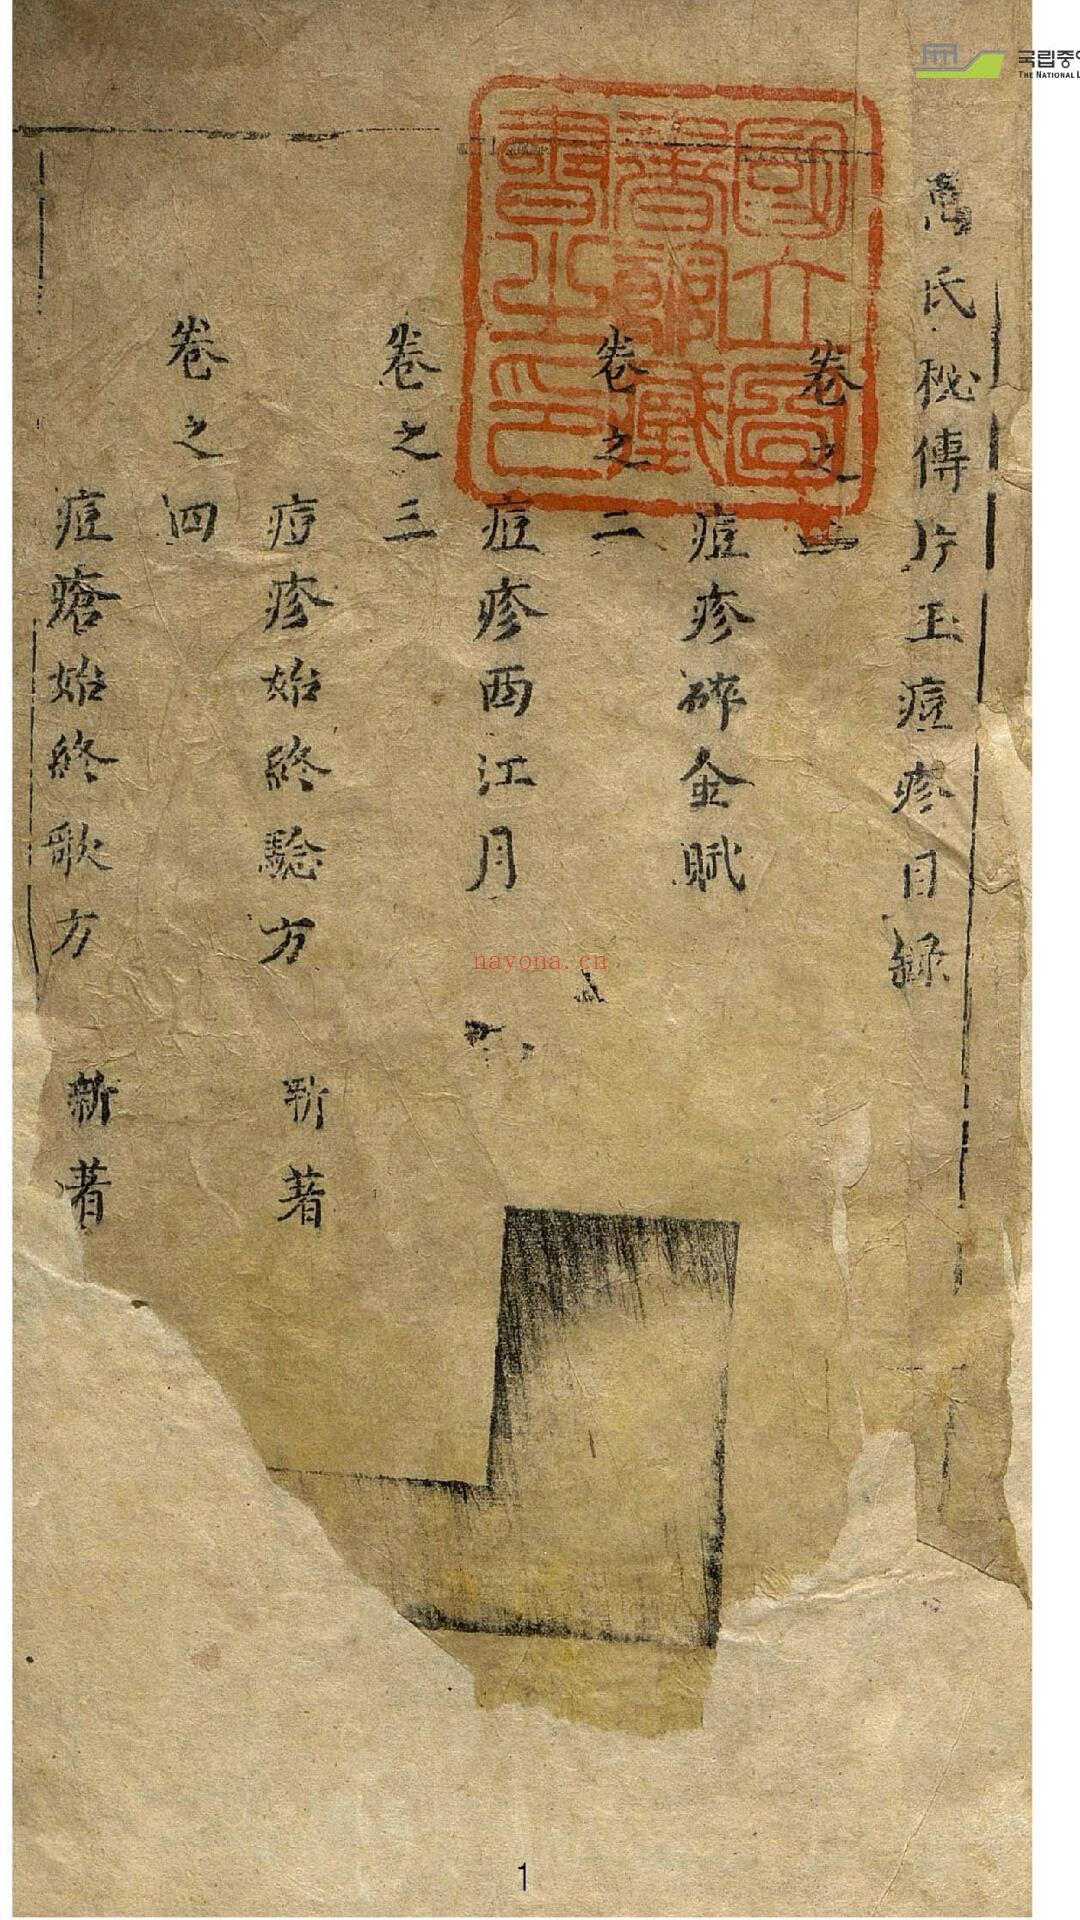 국립중
THE NATIONAL L
國立圖
書館藏
書之印
萬氏秘傳片玉痘疹目録
卷之一
痘疹碎金賦
卷之二
痘疹西江月
卷之三
痘疹始終騐方 新著
卷之四
痘瘡始終歌方 新著
nayona.cn
1